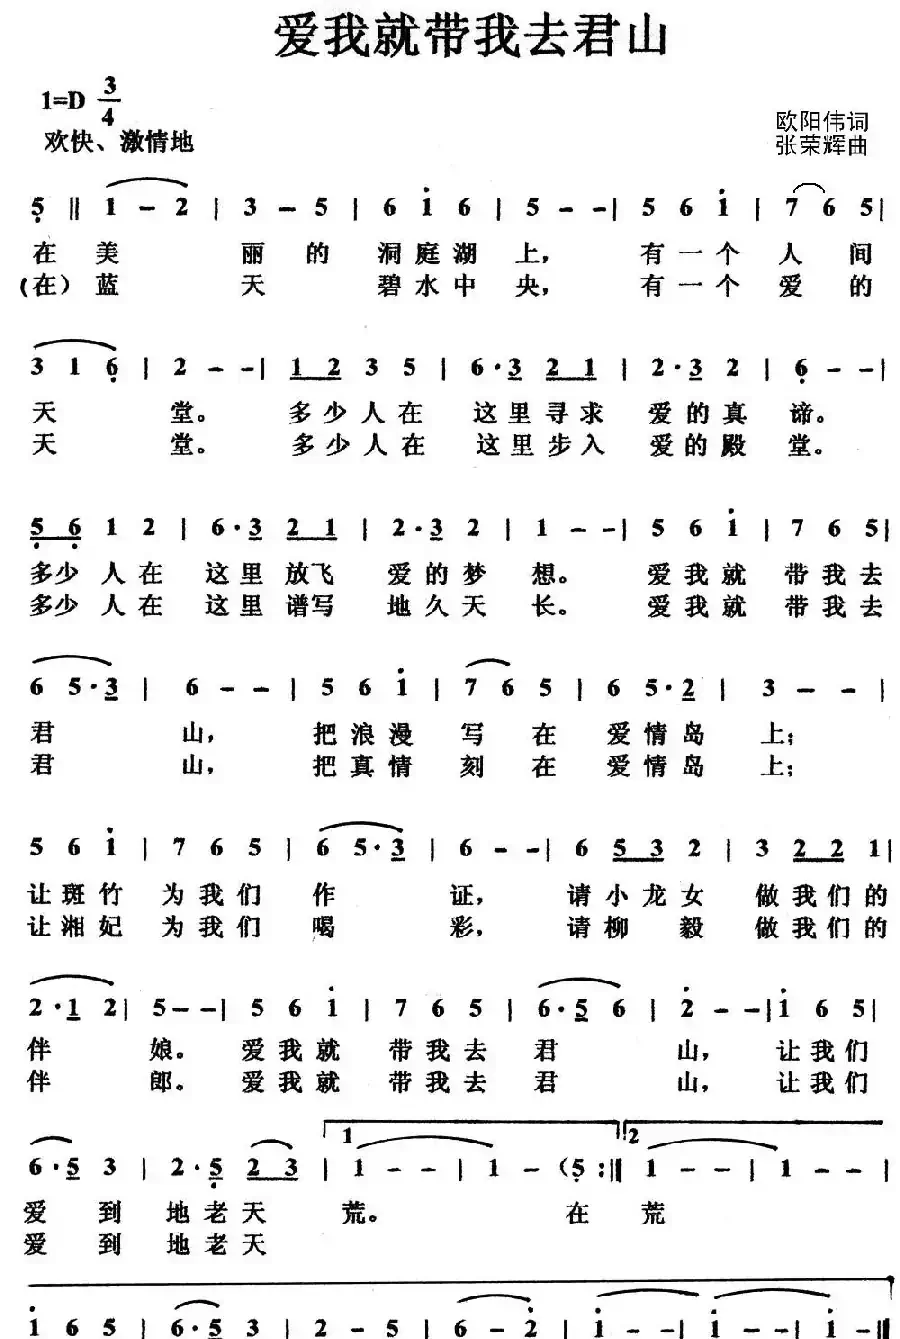 爱我就带我去君山
1=D 3/4
欢快、激情地
欧阳伟词
张荣辉曲
5̣ ‖ 1 – 2 | 3 – 5 | 6 i 6 | 5 – – | 5 6 i | 7 6 5 |
在 美 丽 的 洞 庭 湖 上, 有 一 个 人 间
(在) 蓝 天 碧 水 中 央, 有 一 个 爱 的
3 1 6̣ | 2 – – | 1 2 3 5 | 6 · 3 2 1 | 2 · 3 2 | 6̣ – – |
天 堂。 多 少 人 在 这 里 寻 求 爱 的 真 谛。
天 堂。 多 少 人 在 这 里 步 入 爱 的 殿 堂。
5̣ 6̣ 1 2 | 6 · 3 2 1 | 2 · 3 2 | 1 – – | 5 6 i | 7 6 5 |
多少 人 在 这 里 放飞 爱 的 梦 想。 爱 我 就 带 我 去
多少 人 在 这 里 谱写 地 久 天 长。 爱 我 就 带 我 去
6 5 · 3 | 6 – – | 5 6 i | 7 6 5 | 6 5 · 2 | 3 – – |
君 山, 把 浪 漫 写 在 爱 情 岛 上;
君 山, 把 真 情 刻 在 爱 情 岛 上;
5 6 i | 7 6 5 | 6 5 · 3 | 6 – – | 6 5 3 2 | 3 2 2 1 |
让 斑 竹 为 我 们 作 证, 请 小 龙 女 做 我 们 的
让 湘 妃 为 我 们 喝 彩, 请 柳 毅 做 我 们 的
2 · 1 2 | 5 – – | 5 6 i | 7 6 5 | 6 · 5 6 | 2̇ – – | i 6 5 |
伴 娘。 爱 我 就 带 我 去 君 山, 让 我 们
伴 郎。 爱 我 就 带 我 去 君 山, 让 我 们
1 2
6 · 5 3 | 2 · 5̣ 2 3 | 1 – – | 1 – (5̣ :‖ 1 – – | 1 – – |
爱 到 地 老 天 荒。 在 荒
爱 到 地 老 天
i 6 5 | 6 · 5 3 | 2 – 5 | 6 – 2̇ | i – – | i – – ‖